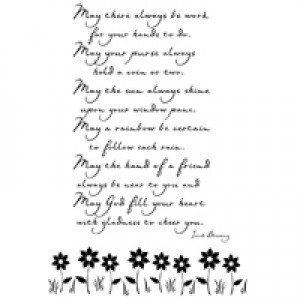 May there always be work
for your hands to do.
May your purse always
hold a coin or two.
May the sun always shine
upon your window pane.
May a rainbow be certain
to follow each rain.
May the hand of a friend
always be near to you and
May God fill your heart
with gladness to cheer you.
Irish Blessing